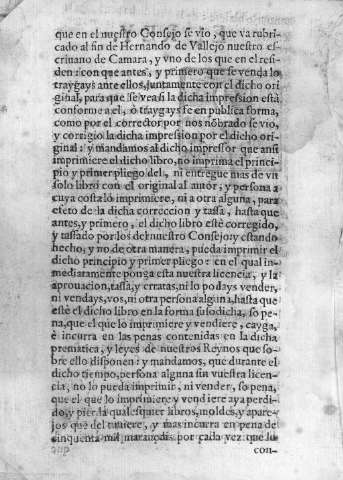 que en el nuestro Consejo se vio, que va rubri-
cado al fin de Hernando de Vallejo nuestro es-
criuano de Camara, y vno de los que en el resi-
den: con que antes, y primero que se venda lo
traygays ante ellos, juntamente con el dicho ori-
ginal, para que se vea si la dicha impression està
conforme a el, ò traygays fe en publica forma,
como por el corrector por nos nõbrado se vio,
y corrigio la dicha impression por el dicho ori-
ginal: y mandamos al dicho impressor que ansi
imprimiere el dicho libro, no imprima el princi-
pio y primer pliego del, ni entregue mas de vn
solo libro con el original al autor, y persona a
cuya costa lo imprimiere, ni a otra alguna, para
efeto de la dicha correccion y tassa, hasta que
antes, y primero, el dicho libro estè corregido,
y tassado por los del nuestro Consejo: y estando
hecho, y no de otra manera, pueda imprimir el
dicho principio y primer pliego: en el qual in-
mediaramente ponga esta nuestra licencia, y la
aprouacion, tassa, y erratas, ni lo podays vender,
ni vendays, vos, ni otra persona alguna, hasta que
estè el dicho libro en la forma susodicha, so pe-
na, que el que lo imprimiere y vendiere, cayga,
è incurra en las penas contenidas en la dicha
prematica, y leyes de nuestros Reynos que so-
bre ello disponen: y mandamos, que durante el
dicho tiempo, persona alguna sin vuestra licen-
cia, no lo pueda imprimir, ni vender, so pena,
que el que lo imprimiere y vendiere aya perdi-
do, y pierda qualesquier libros, moldes, y apare-
jos que del tuuiere, y mas incurra en pena de
cinquenta mil marauedis por cada vez que lo
con-